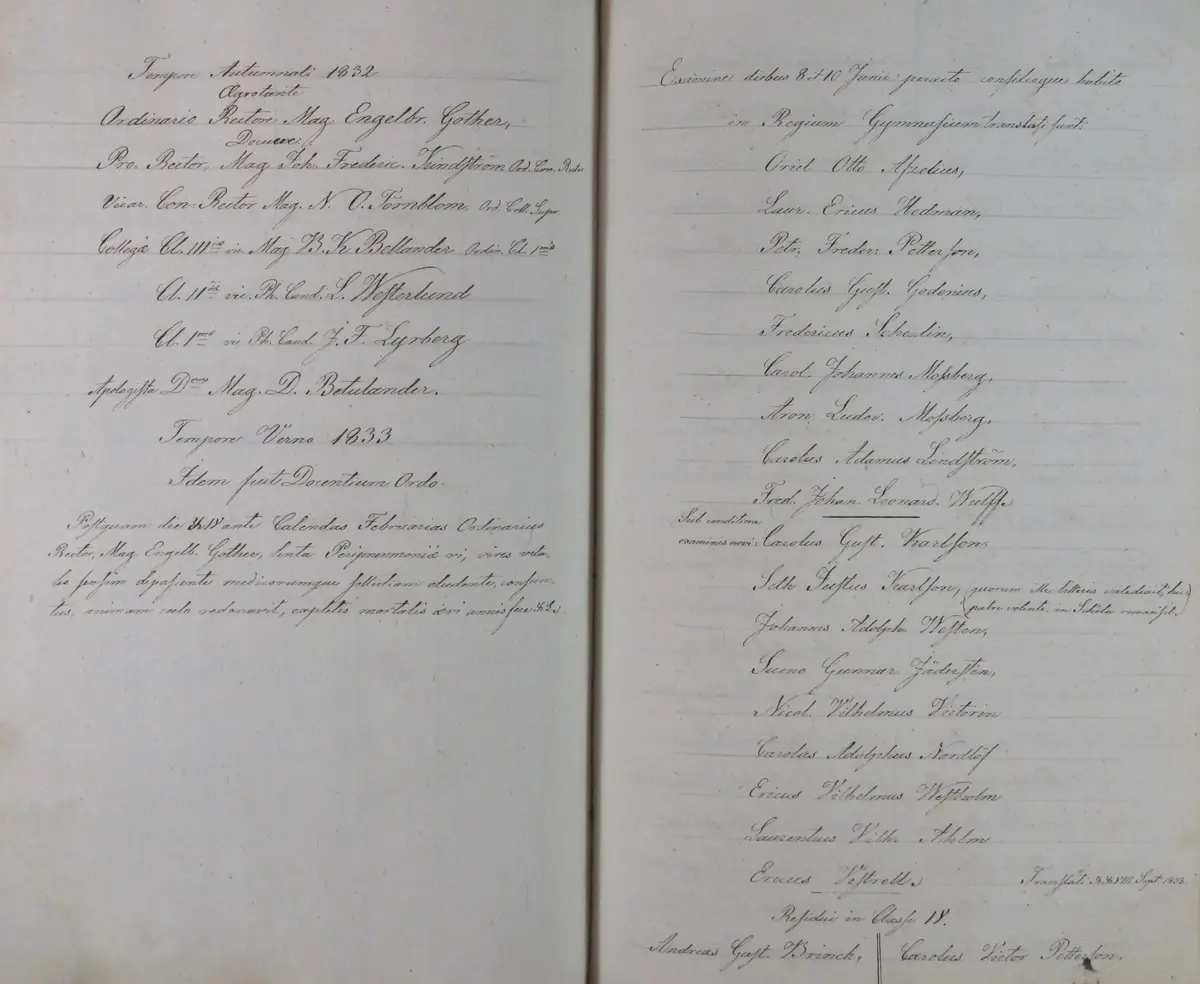 Tempore Autumnali 1832
Ægrotante
Ordinario Rectore Mag Engelbr. Gother,
Docuere:
Pro. Rector, Mag Joh. Frederic. Kindström Ord. Con. Rector
Vicar. Con-Rector Mag. N. O. Törnblom. Ord. Coll. Super.
Collegæ Cl. III iæ vic Mag B. K. Bellander Ordin. Cl. 1 mæ
Cl. II dæ vic. Ph. Cand. L. Westerlund
Cl. 1 mæ vic Ph. Cand. J. F. Lyrberg
Apologista D nus Mag. D. Betulander.
Tempore Verno 1833
Idem fuit Docentium Ordo.
Postquam die ante Calendas Februarias Ordinarius
Rector, Mag. Engelb. Gother, lenta Peripneumoniæ vi, vires vita-
les sensim depascente medicorumque eludente, consum-
tus, animam coelo redonavit, expletis mortalis ævi annis fere XL.
Examine diebus 8 et 10 Junii peracto habito
in Regium Gymnasium translati sunt:
Oriel Otto Afzelius,
Laur. Ericus Hedman,
Petr. Freder. Petterson,
Carolus Gust. Godenius,
Fredericus Schenlin,
Carol. Johannes Mossberg,
Aron Ludov. Mossberg,
Carolus Adamus Lindström,
Fred. Johan. Leonard. Wulff.
Sub conditione
examinis novi: Carolus Gust. Karlson,
Seth Justus Karlson, (quorum ille litteris valedixit, hic
patre volente, in Schola remansit.)
Johannes Adolph. Westen,
Sueno Gunnar Jädersten,
Nicol. Vilhelmus Victorin
Carolus Adolphus Nordlöf
Ericus Vilhelmus Westholm
Laurentius Vilh. Ahlm
Ericus Vestrell. Translati XXVIII Sept. 1833.
Residui in Classe IV.
Andreas Gust. Brinck, Carolus Victor Petterson,